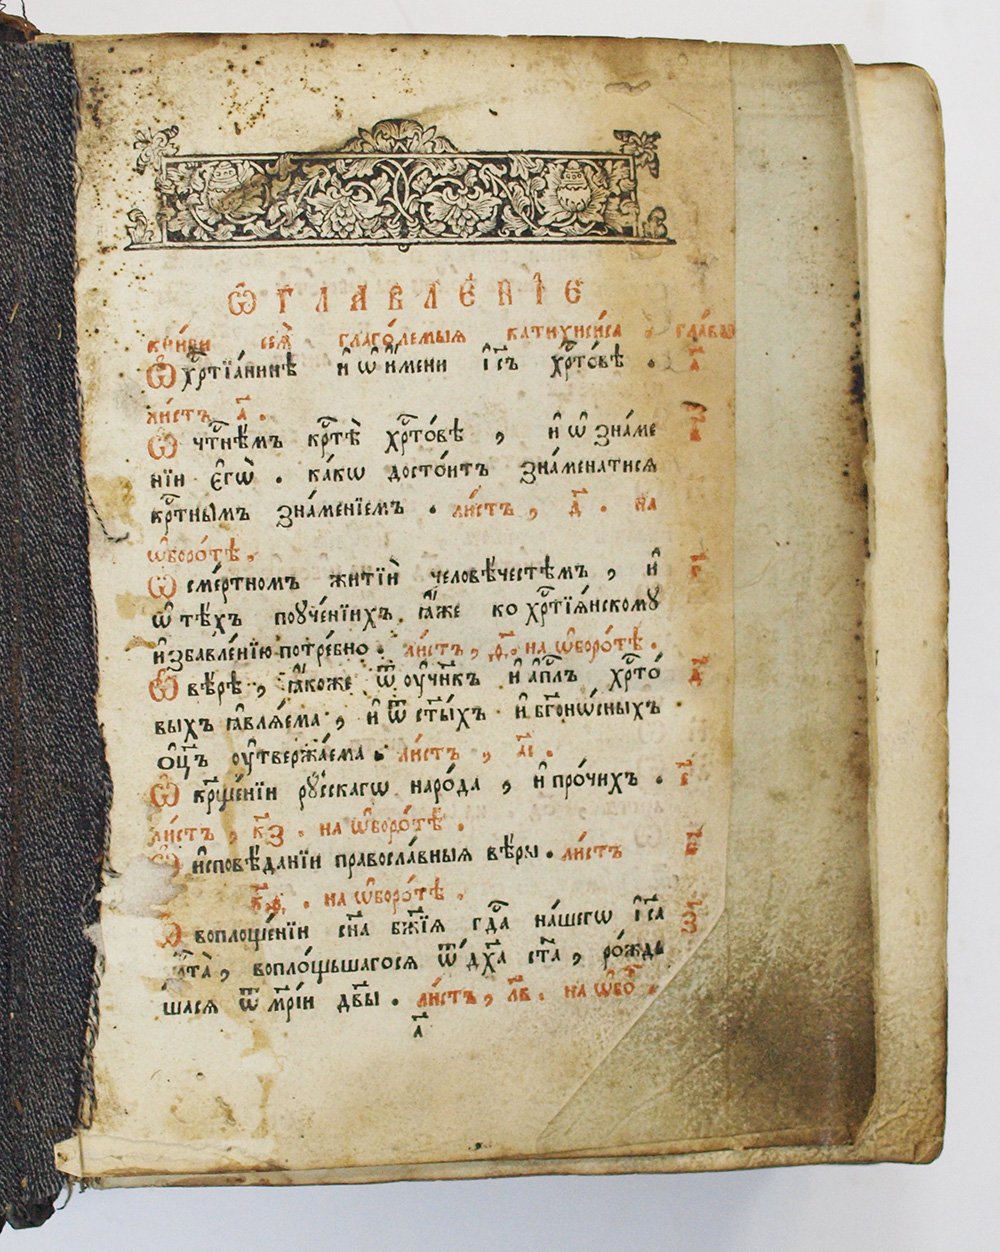 Ѡ҆ГЛАВЛЕ́НІЕ
кни́ги сея̀ глаго́лемыя катихиси́са главы̀
Ѡ҆ хр҇тїа́нинѣ и҆ ѡ҆ и҆́мени і҆с҃ъ хр҇то́вѣ . а҃
ли́стъ а҃ .
Ѡ҆ чт҇нѣ́мъ кр҇тѣ̀ хр҇то́вѣ , и҆ ѡ҆ зна́ме в҃
нїи є҆гѡ̀ . ка́кѡ досто́итъ зна́менатися
кр҇тнымъ зна́менїемъ . ли́стъ , д҃ . на
ѡ҆боро́тѣ .
Ѡ҆ сме́ртномъ житїѝ человѣ́честѣмъ , и҆ г҃
ѡ҆ тѣ́хъ поуче́нїихъ , ꙗ҆́же ко хр҇тїя́нскому
и҆збавле́нїю потре́бно . ли́стъ , ѳ҃ . на ѡ҆боро́тѣ .
Ѡ҆ вѣ́рѣ , ꙗ҆́коже ѿ оу҆чн҃къ и҆ а҆пⷭ҇лъ хр҇то́ д҃
выхъ ꙗ҆вля́ема , и҆ ѿ ст҃ы́хъ и҆ бг҃оно́сныхъ
о҆ц҃ъ оу҆твержа́ема . ли́стъ , а҃і .
Ѡ҆ кр҃ще́нїи ру́сскагѡ наро́да , и҆ про́чихъ . є҃
ли́стъ , к҃з . на ѡ҆боро́тѣ .
Ѡ҆ и҆сповѣ́данїи правосла́вныя вѣ́ры . ли́стъ ѕ҃
к҃ѳ . на ѡ҆боро́тѣ .
Ѡ҆ воплоще́нїи сн҃а бж҃їя гд҇а на́шегѡ і҆с҃а з҃
хр҇та̀ , вопло́щьшагося ѿ дх҃а ст҃а , ро́ждь
шася ѿ мр҃і́и дв҃ы . ли́стъ , л҃в . на ѡ҆бо҇ .
а҃